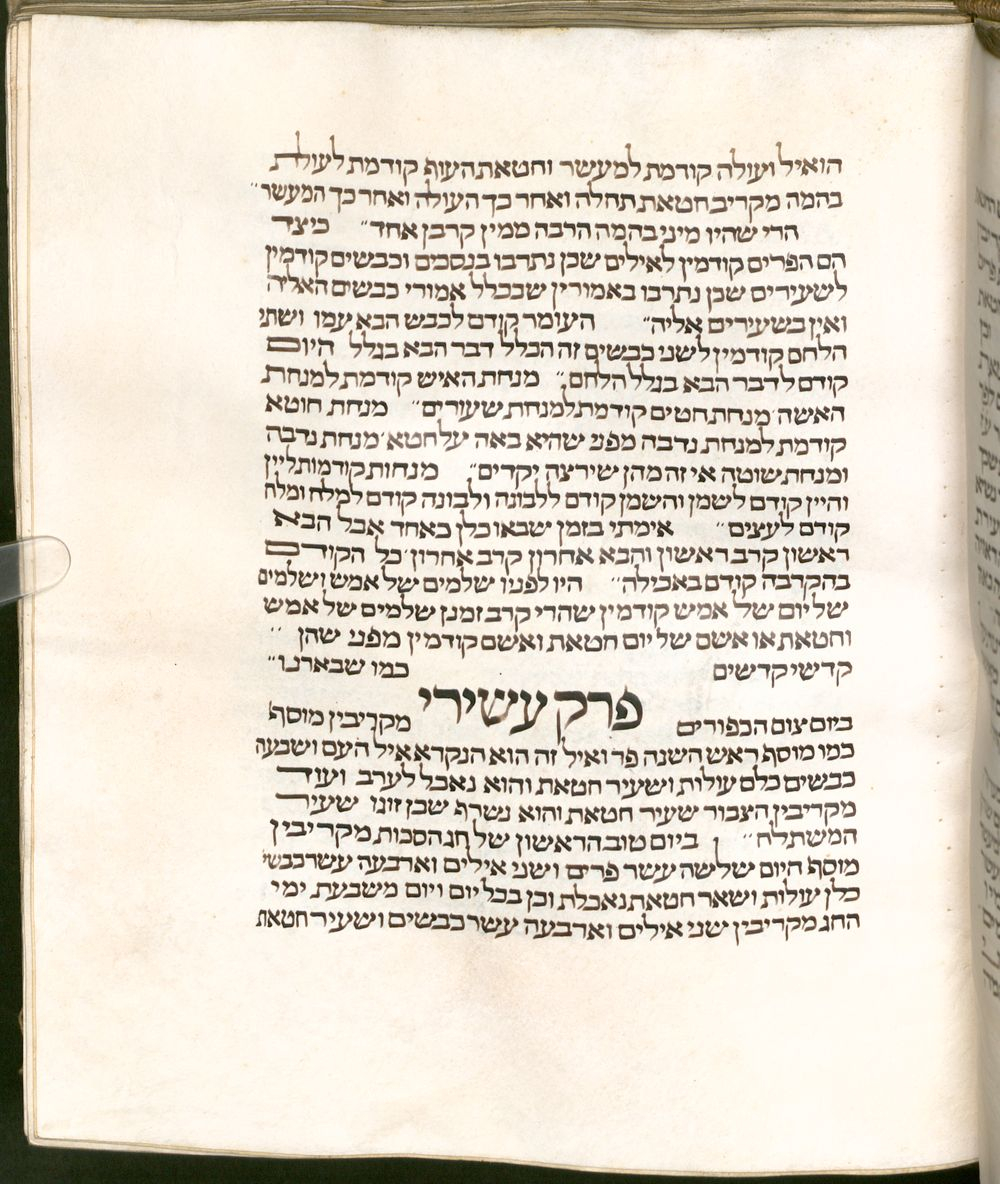 הואיל ועולה קודמת למעשר וחטאת העוף קודמת לעולת
בהמה מקריב חטאת תחלה ואחר כך העולה ואחר כך המעשר״
הרי שהיו מיני בהמה הרבה ממין קרבן אחד״ כיצד
הם הפרים קודמין לאילים שכן נתרבו בנסכים וכבשים קודמין
לשעירים שכן נתרבו באמורין שבכלל אמורי כבשים האליה
ואין בשעירים אליה״ העומר קודם לכבש הבא עמו ושתי
הלחם קודמין לשני כבשים זה הכלל דבר הבא בגלל היום
קודם לדבר הבא בגלל הלחם״ מנחת האיש קודמת למנחת
האשה מנחת חטים קודמת למנחת שעורים״ מנחת חוטא
קודמת למנחת נדבה מפני שהיא באה על חטא׳ מנחת נדבה
ומנחת שוטה אי זה מהן שירצה יקדים״ מנחות קודמות ליין
והיין קודם לשמן והשמן קודם ללבונה ולבונה קודם למלח ומלח
קודם לעצים״ אימתי בזמן שבאו כלן כאחד אבל הבא
ראשון קרב ראשון והבא אחרון קרב אחרון׳ כל הקודם
בהקרבה קודם באכילה״ היו לפניו שלמים של אמש ושלמים
של יום של אמש קודמין שהרי קרב זמנן שלמים של אמש
וחטאת או אשם של יום חטאת ואשם קודמין מפני שהן ״
קדשי קדשים כמו שבארנו״
פרק עשירי
ביום צום הכפורים מקריבין מוסף
כמו מוסף ראש השנה פר ואיל זה הוא הנקרא איל העם ושבעה
כבשים כלם עולות ושעיר חטאת והוא נאכל לערב ועוד
מקריבין הצבור שעיר חטאת והוא נשרף שבן זוגו שעיר
המשתלח״ ביום טוב הראשון של חג הסכות מקריבין
מוסף היום שלשה עשר פרים ושני אילים וארבעה עשר כבשי׳
כלן עולות ושאר חטאת נאכלת וכן בכל יום ויום משבעת ימי
החג מקריבין שני אילים וארבעה עשר כבשים ושעיר חטאת